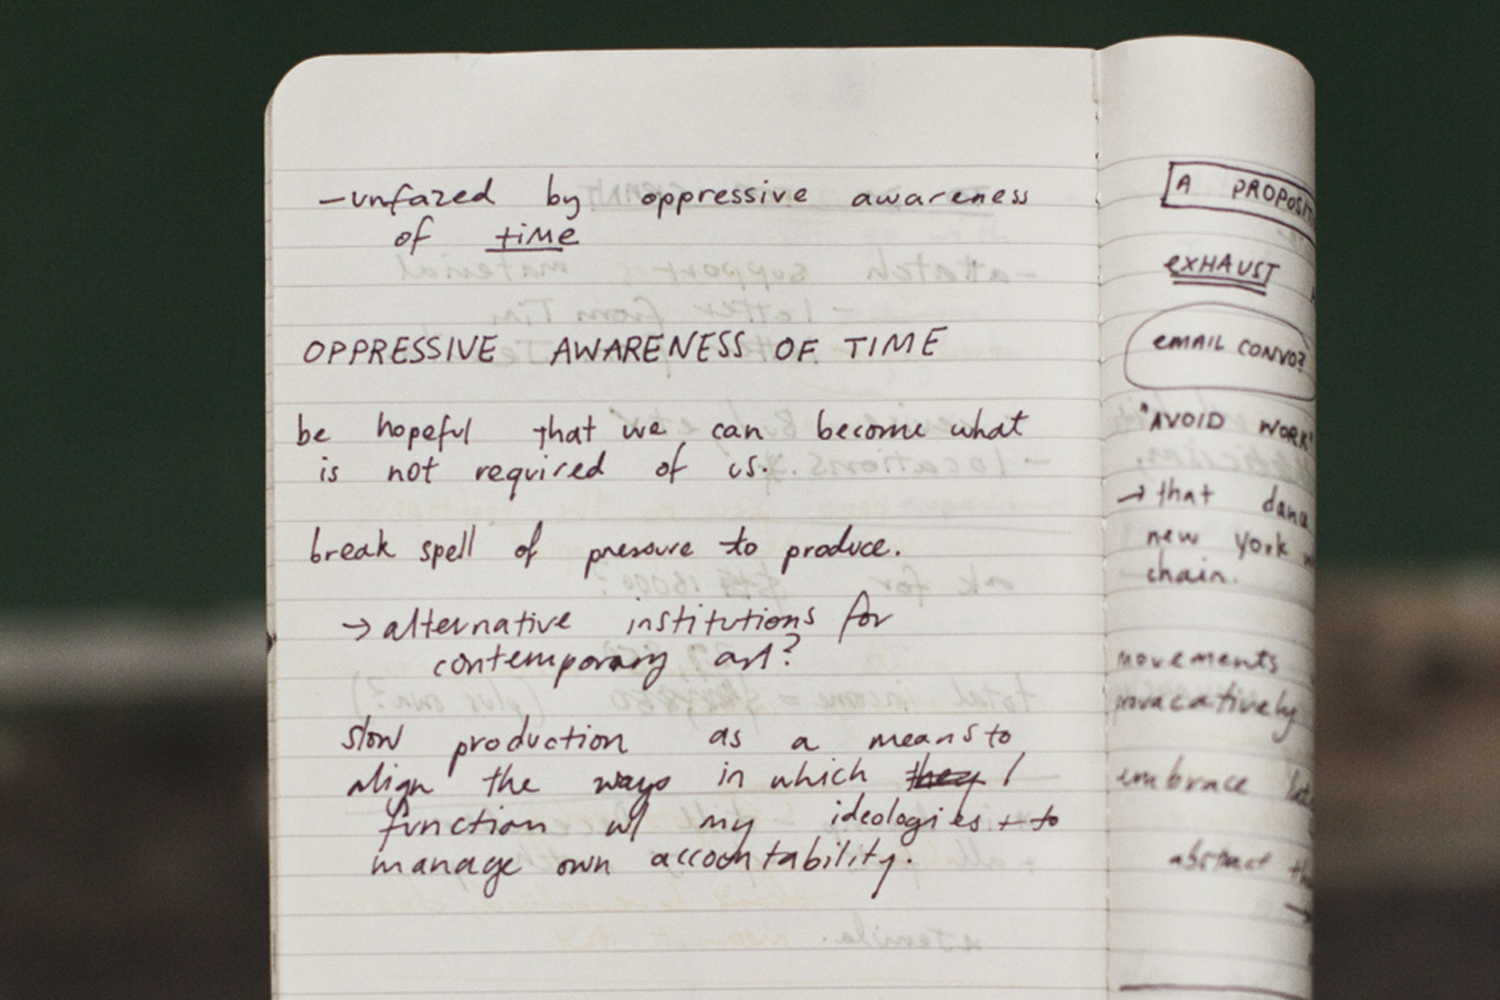 -unfazed by oppressive awareness
of time
OPPRESSIVE AWARENESS OF TIME
be hopeful that we can become what
is not required of us.
break spell of pressure to produce.
→ alternative institutions for
contemporary art?
slow production as a means to
align the ways in which they I
function w/ my ideologies + to
manage own accountability.
A
EXHAUST
EMAIL CONVO?
"AVOID WORK"
→ that
new york
chain.
movements
embrace
abstract